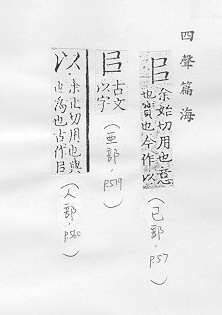 四聲篇海
㠯
余始切用也意
也質也今作以
(己部.p57)
㠯
古文
以字
(亞部.p519)
以
余止切用也與
也爲也古作㠯
(人部.p560)